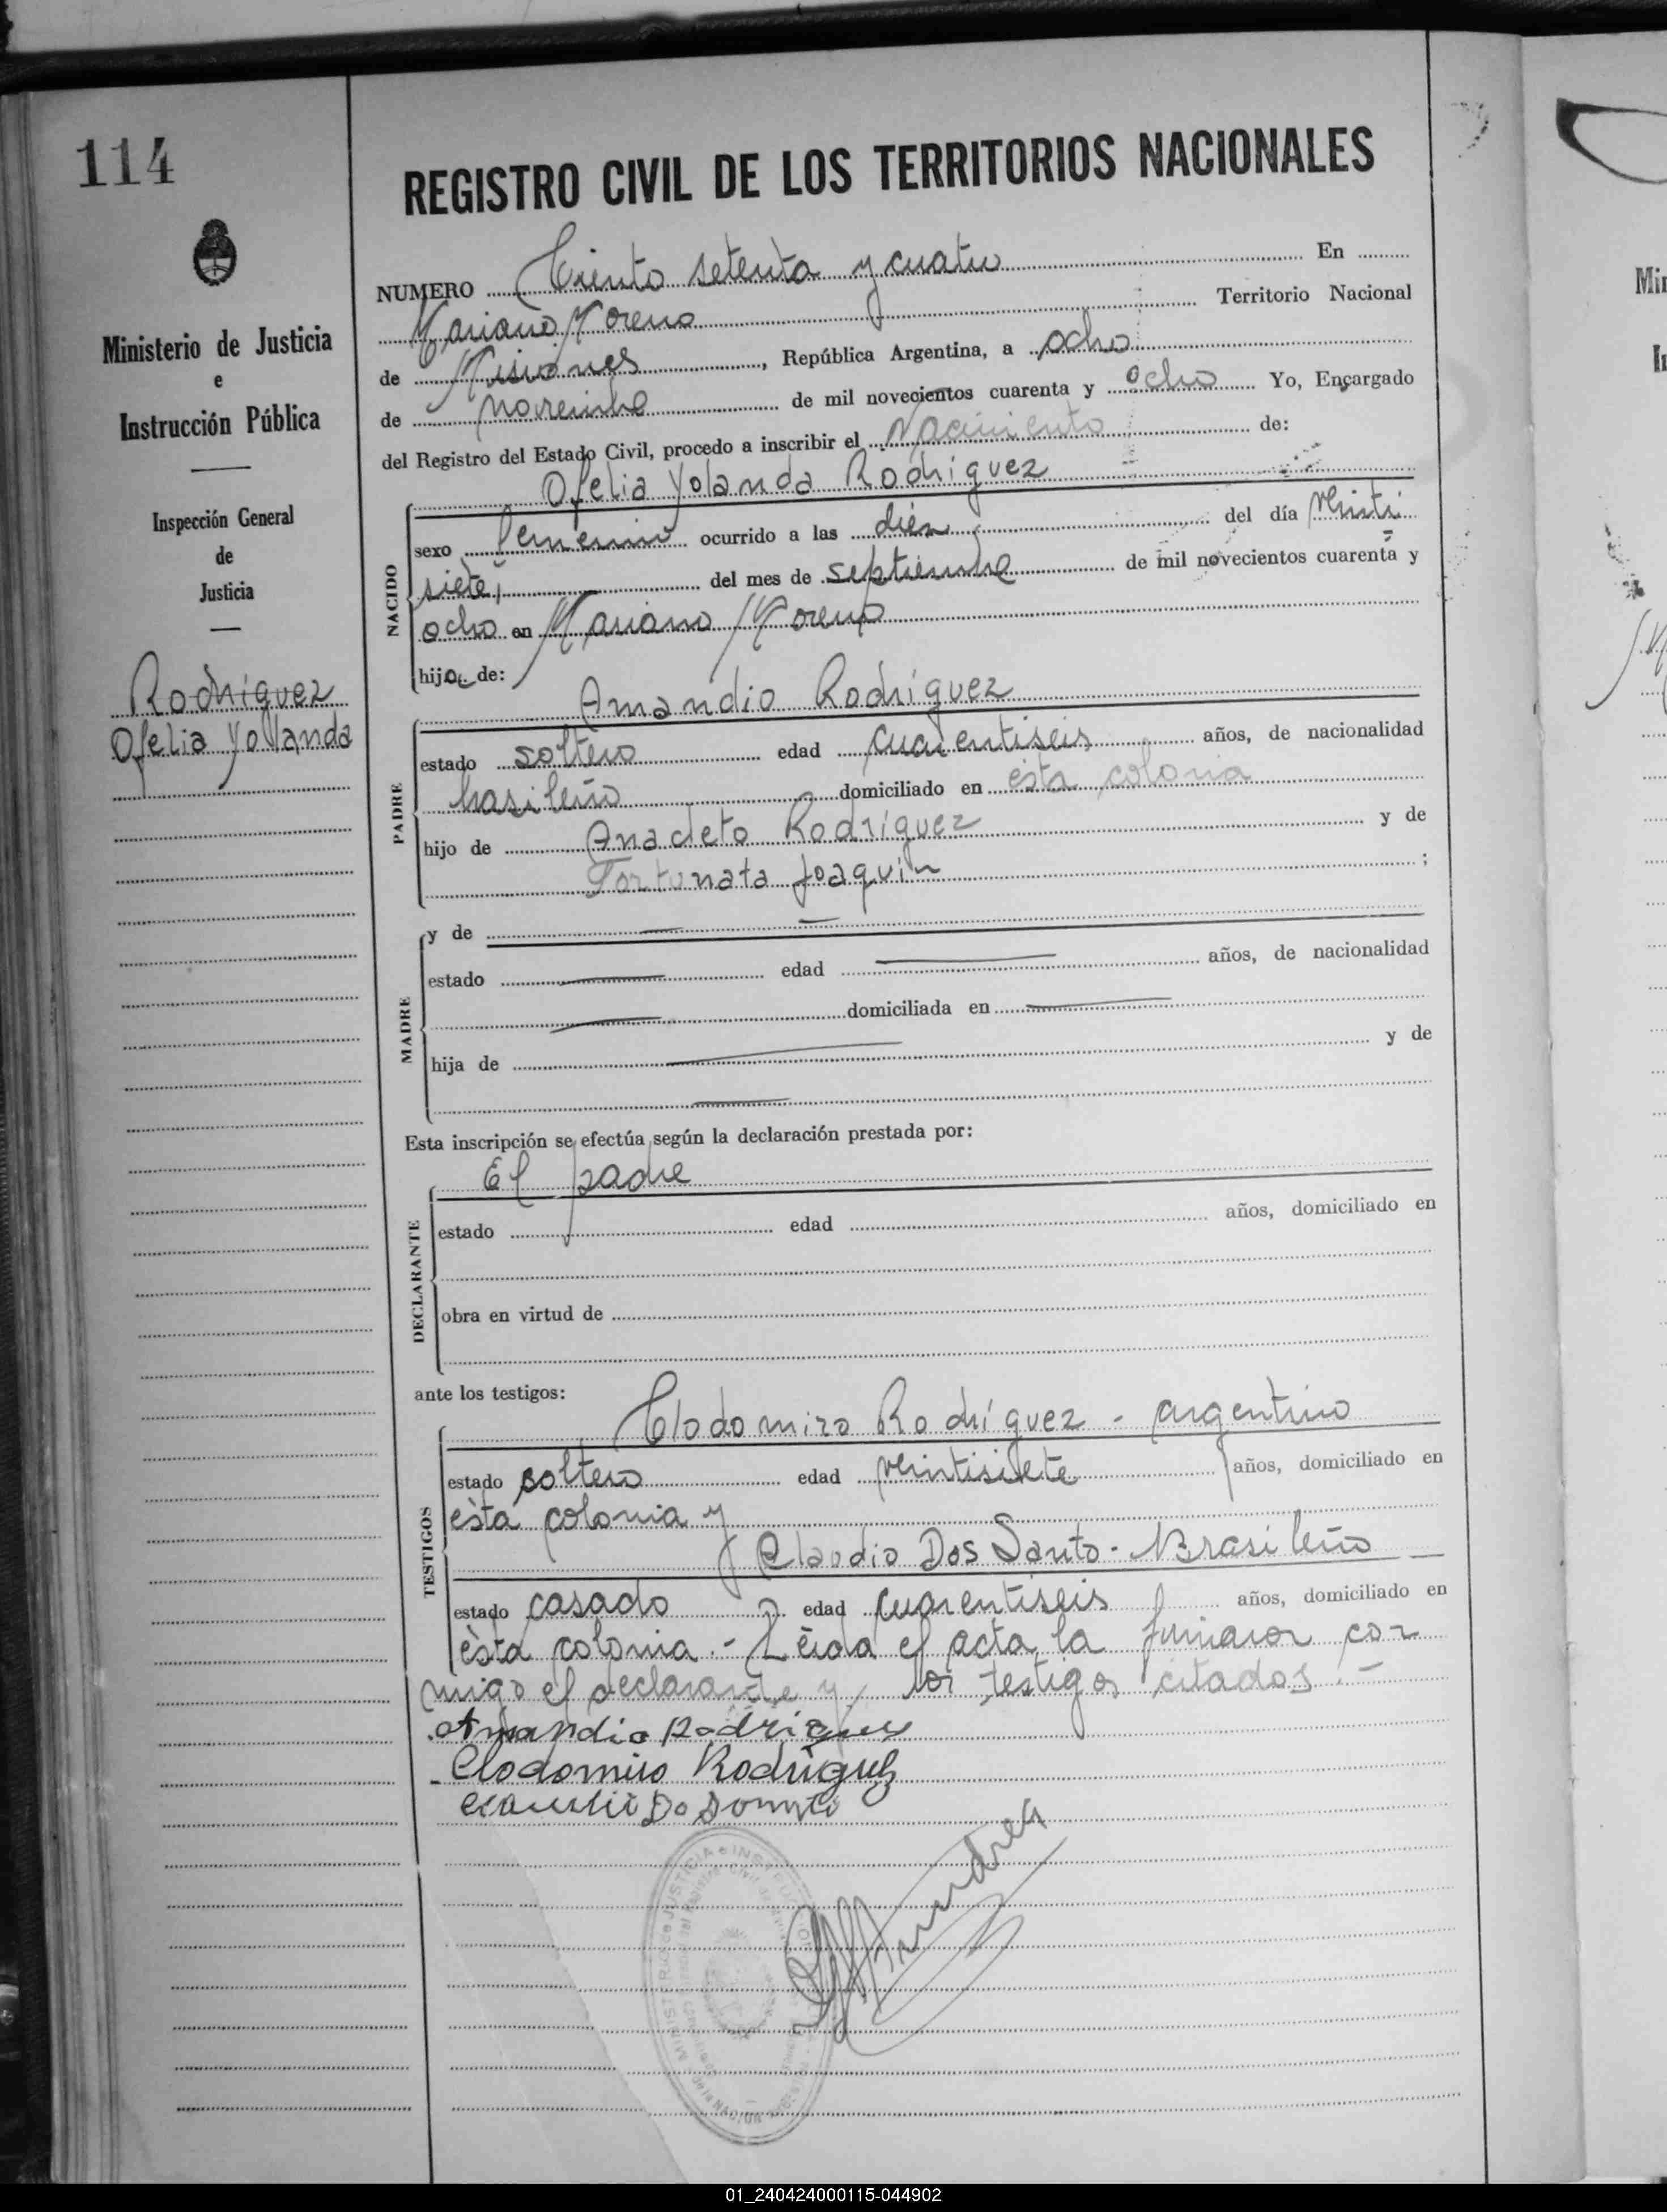 114
Ministerio de Justicia
e
Instrucción Pública
Inspección General
de
Justicia
Rodríguez
Ofelia Yolanda
REGISTRO CIVIL DE LOS TERRITORIOS NACIONALES
NUMERO Ciento setenta y cuatro En
Mariano Moreno Territorio Nacional
de Misiones, República Argentina, a ocho
de noviembre de mil novecientos cuarenta y ocho Yo, Encargado
del Registro del Estado Civil, procedo a inscribir el Nacimiento de:
NACIDO
Ofelia Yolanda Rodríguez
sexo femenino ocurrido a las diez del día veinti
siete, del mes de septiembre de mil novecientos cuarenta y
ocho en Mariano Moreno
hija de:
PADRE
Amandio Rodríguez
estado soltero edad cuarentiseis años, de nacionalidad
brasileño domiciliado en ésta colonia
hijo de Anacleto Rodríguez y de
Fortunata Joaquín ;
MADRE
y de
estado edad años, de nacionalidad
domiciliada en
hija de y de
Esta inscripción se efectúa según la declaración prestada por:
DECLARANTE
El padre
estado edad años, domiciliado en
obra en virtud de
ante los testigos:
TESTIGOS
Clodomiro Rodríguez - argentino
estado soltero edad veintisiete años, domiciliado en
ésta colonia y
Claudio Dos Santo - Brasileño
estado casado edad cuarentiseis años, domiciliado en
ésta colonia.- Leída el acta la firmaron con
migo el declarante y los testigos citados.-
Amandio Rodriguez
Clodomiro Rodriguez
Do
MINISTERIO de JUSTICIA e INSTRUCCION
de la NACION
01_240424000115-044902